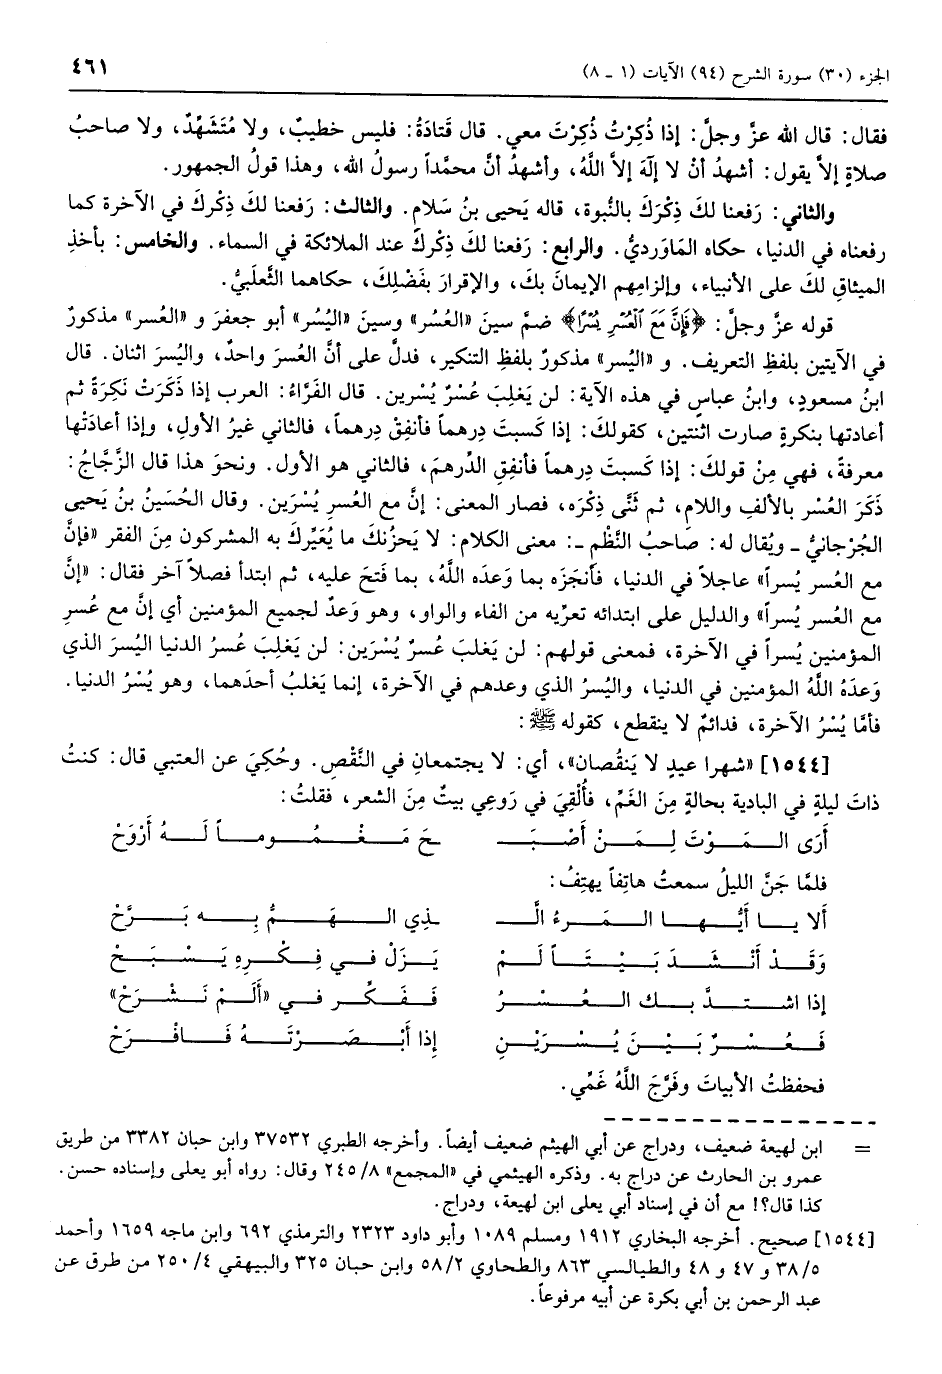 الجزء (٣٠) سورة الشرح (٩٤) الآيات (١ ـ ٨)
٤٦١
فقال: قال الله عزَّ وجلَّ: إذا ذُكِرْتُ ذُكِرْتَ معي. قال قَتادَةُ: فليس خطيبٌ، ولا مُتَشَهِّدٌ، ولا صاحبُ
صلاةٍ إلاَّ يقول: أشهدُ أنْ لا إلَهَ إلاَّ اللَّهُ، وأشهدُ أنَّ محمَّداً رسولُ الله، وهذا قولُ الجمهور.
والثاني: رَفعنا لكَ ذِكْرَكَ بالنُّبوة، قاله يَحيى بنُ سَلام. والثالث: رَفعنا لكَ ذِكْركَ في الآخرة كما
رفعناه في الدنيا، حكاه المَاوَرديُّ. والرابع: رَفعنا لكَ ذِكْركَ عند الملائكة في السماء. والخامس: بأخذِ
الميثاقِ لكَ على الأنبياء، وإلزامِهم الإيمانَ بكَ، والإقرارَ بفَضْلِكَ، حكاهما الثَّعلَبيُّ.
قوله عزَّ وجلَّ: ﴿فَإِنَّ مَعَ ٱلْعُسْرِ يُسْرًا﴾ ضمَّ سينَ «العُسُر» وسينَ «اليُسُر» أبو جعفرَ و «العُسر» مذكورٌ
في الآيتين بلفظِ التعريف. و «اليُسر» مذكورٌ بلفظِ التنكير، فدلَّ على أنَّ العُسرَ واحدٌ، واليُسرَ اثنان. قال
ابنُ مسعودٍ، وابنُ عباسٍ في هذه الآية: لن يَغلِبَ عُسْرٌ يُسْرين. قال الفَرَّاءُ: العرب إذا ذَكَرَتْ نَكِرَةً ثم
أعادتها بنكرةٍ صارت اثنتين، كقولكَ: إذا كَسبتَ دِرهماً فأنفِقْ دِرهماً، فالثاني غيرُ الأولِ، وإذا أعادَتْها
معرفةً، فهي مِنْ قولكَ: إذا كَسبتَ دِرهماً فأنفِقِ الدِّرهمَ، فالثاني هو الأول. ونحوَ هذا قال الزَّجَّاجُ:
ذَكَرَ العُسْر بالألفِ واللام، ثم ثَنَّى ذِكْرَه، فصار المعنى: إنَّ مع العُسرِ يُسْرَين. وقال الحُسَينُ بنُ يَحيى
الجُرْجانيُّ ـ ويُقال له: صاحبُ النَّظْمِ ـ: معنى الكلام: لا يَحزنكَ ما يُعَيِّركَ به المشركون مِنَ الفقر «فإنَّ
مع العُسر يُسراً» عاجلاً في الدنيا، فأنجَزَه بما وَعَده اللَّهُ، بما فَتَحَ عليه، ثم ابتدأ فصلاً آخر فقال: «إنَّ
مع العُسر يُسراً» والدليل على ابتدائه تعرِّيه من الفاء والواو، وهو وَعدٌ لجميع المؤمنين أي إنَّ مع عُسرِ
المؤمنين يُسراً في الآخرة، فمعنى قولهم: لن يَغلبَ عُسرٌ يُسْرَين: لن يَغلِبَ عسرُ الدنيا اليُسرَ الذي
وَعَدَهُ اللَّهُ المؤمنين في الدنيا، واليُسرُ الذي وعدهم في الآخرة، إنما يَغلبُ أحدَهما، وهو يُسْرُ الدنيا.
فأمَّا يُسْرُ الآخرة، فدائمٌ لا ينقطع، كقوله ﷺ:
[١٥٤٤] «شهرا عيدٍ لا يَنقُصان»، أي: لا يجتمعانِ في النَّقْصِ. وحُكِيَ عن العتبي قال: كنتُ
ذاتَ ليلةٍ في البادية بحالةٍ مِنَ الغَمِّ، فأُلْقِيَ في رَوعِي بيتٌ مِنَ الشعر، فقلتُ:
أَرَى المَوْتَ لِمَنْ أَصْبَـ ـحَ مَغْمُوماً لَهُ أَرْوَحْ
فلمَّا جَنَّ الليلُ سمعتُ هاتِفاً يهتِفُ:
أَلا يا أَيُّها المَرءُ الَّـ ـذِي الهَمُّ بِه بَرَّحْ
وَقَدْ أَنْشَدَ بَيْتَاً لَمْ يَزَلْ في فِكْرِهِ يَسْبَحْ
إذا اشتدَّ بك العُسْرُ فَفَكِّر في «أَلَمْ نَشْرَحْ»
فَعُسْرٌ بَيْنَ يُسْرَيْنِ إذا أَبْصَرْتَهُ فَافْرَحْ
فحفظتُ الأبياتَ وفَرَّجَ اللَّهُ غَمِّي.
= ابن لهيعة ضعيف، ودراج عن أبي الهيثم ضعيف أيضاً. وأخرجه الطبري ٣٧٥٣٢ وابن حبان ٣٣٨٢ من طريق
عمرو بن الحارث عن دراج به. وذكره الهيثمي في «المجمع» ٢٤٥/٨ وقال: رواه أبو يعلى وإسناده حسن.
كذا قال؟! مع أن في إسناد أبي يعلى ابن لهيعة، ودراج.
[١٥٤٤] صحيح. أخرجه البخاري ١٩١٢ ومسلم ١٠٨٩ وأبو داود ٢٣٢٣ والترمذي ٦٩٢ وابن ماجه ١٦٥٩ وأحمد
٣٨/٥ و ٤٧ و ٤٨ والطيالسي ٨٦٣ والطحاوي ٥٨/٢ وابن حبان ٣٢٥ والبيهقي ٢٥٠/٤ من طرق عن
عبد الرحمن بن أبي بكرة عن أبيه مرفوعاً.